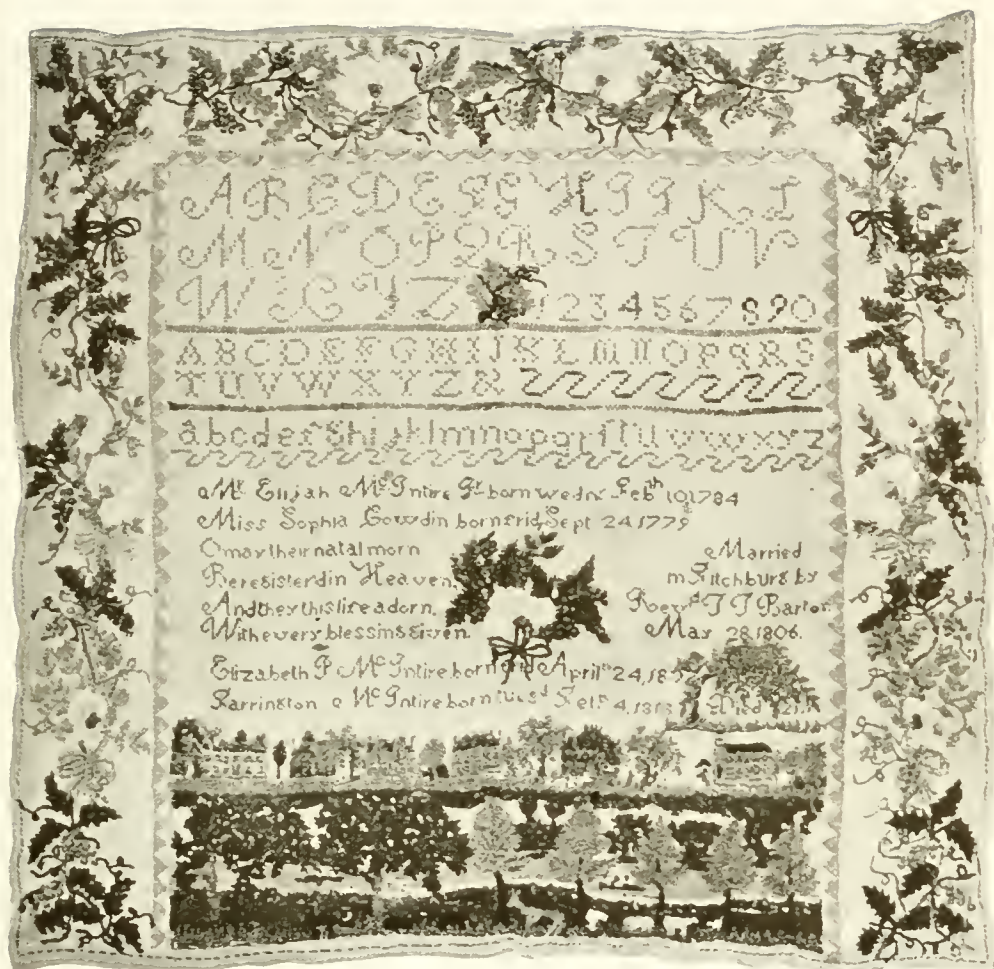 A B C D E F G H I J K L
M N O P Q R S T U V
W X Y Z 1 2 3 4 5 6 7 8 9 0
A B C D E F G H I J K L M N O P Q R S
T U V W X Y Z &
a b c d e f g h i j k l m n o p q r ſ t u v w x y z
Mr Elijah McIntire Jr born wedns Febth 10 1784
Miss Sophia Cowdin born frid Sept 24 1779
O may their natal morn
Be registerd in Heaven
And they this life adorn
With every blessing given.
Married
in Fitchburg by
Revd T T Barton
May 28 1806.
Elizabeth P McIntire born April 24, 
Farrington McIntire born tuesd Feb 4, Died